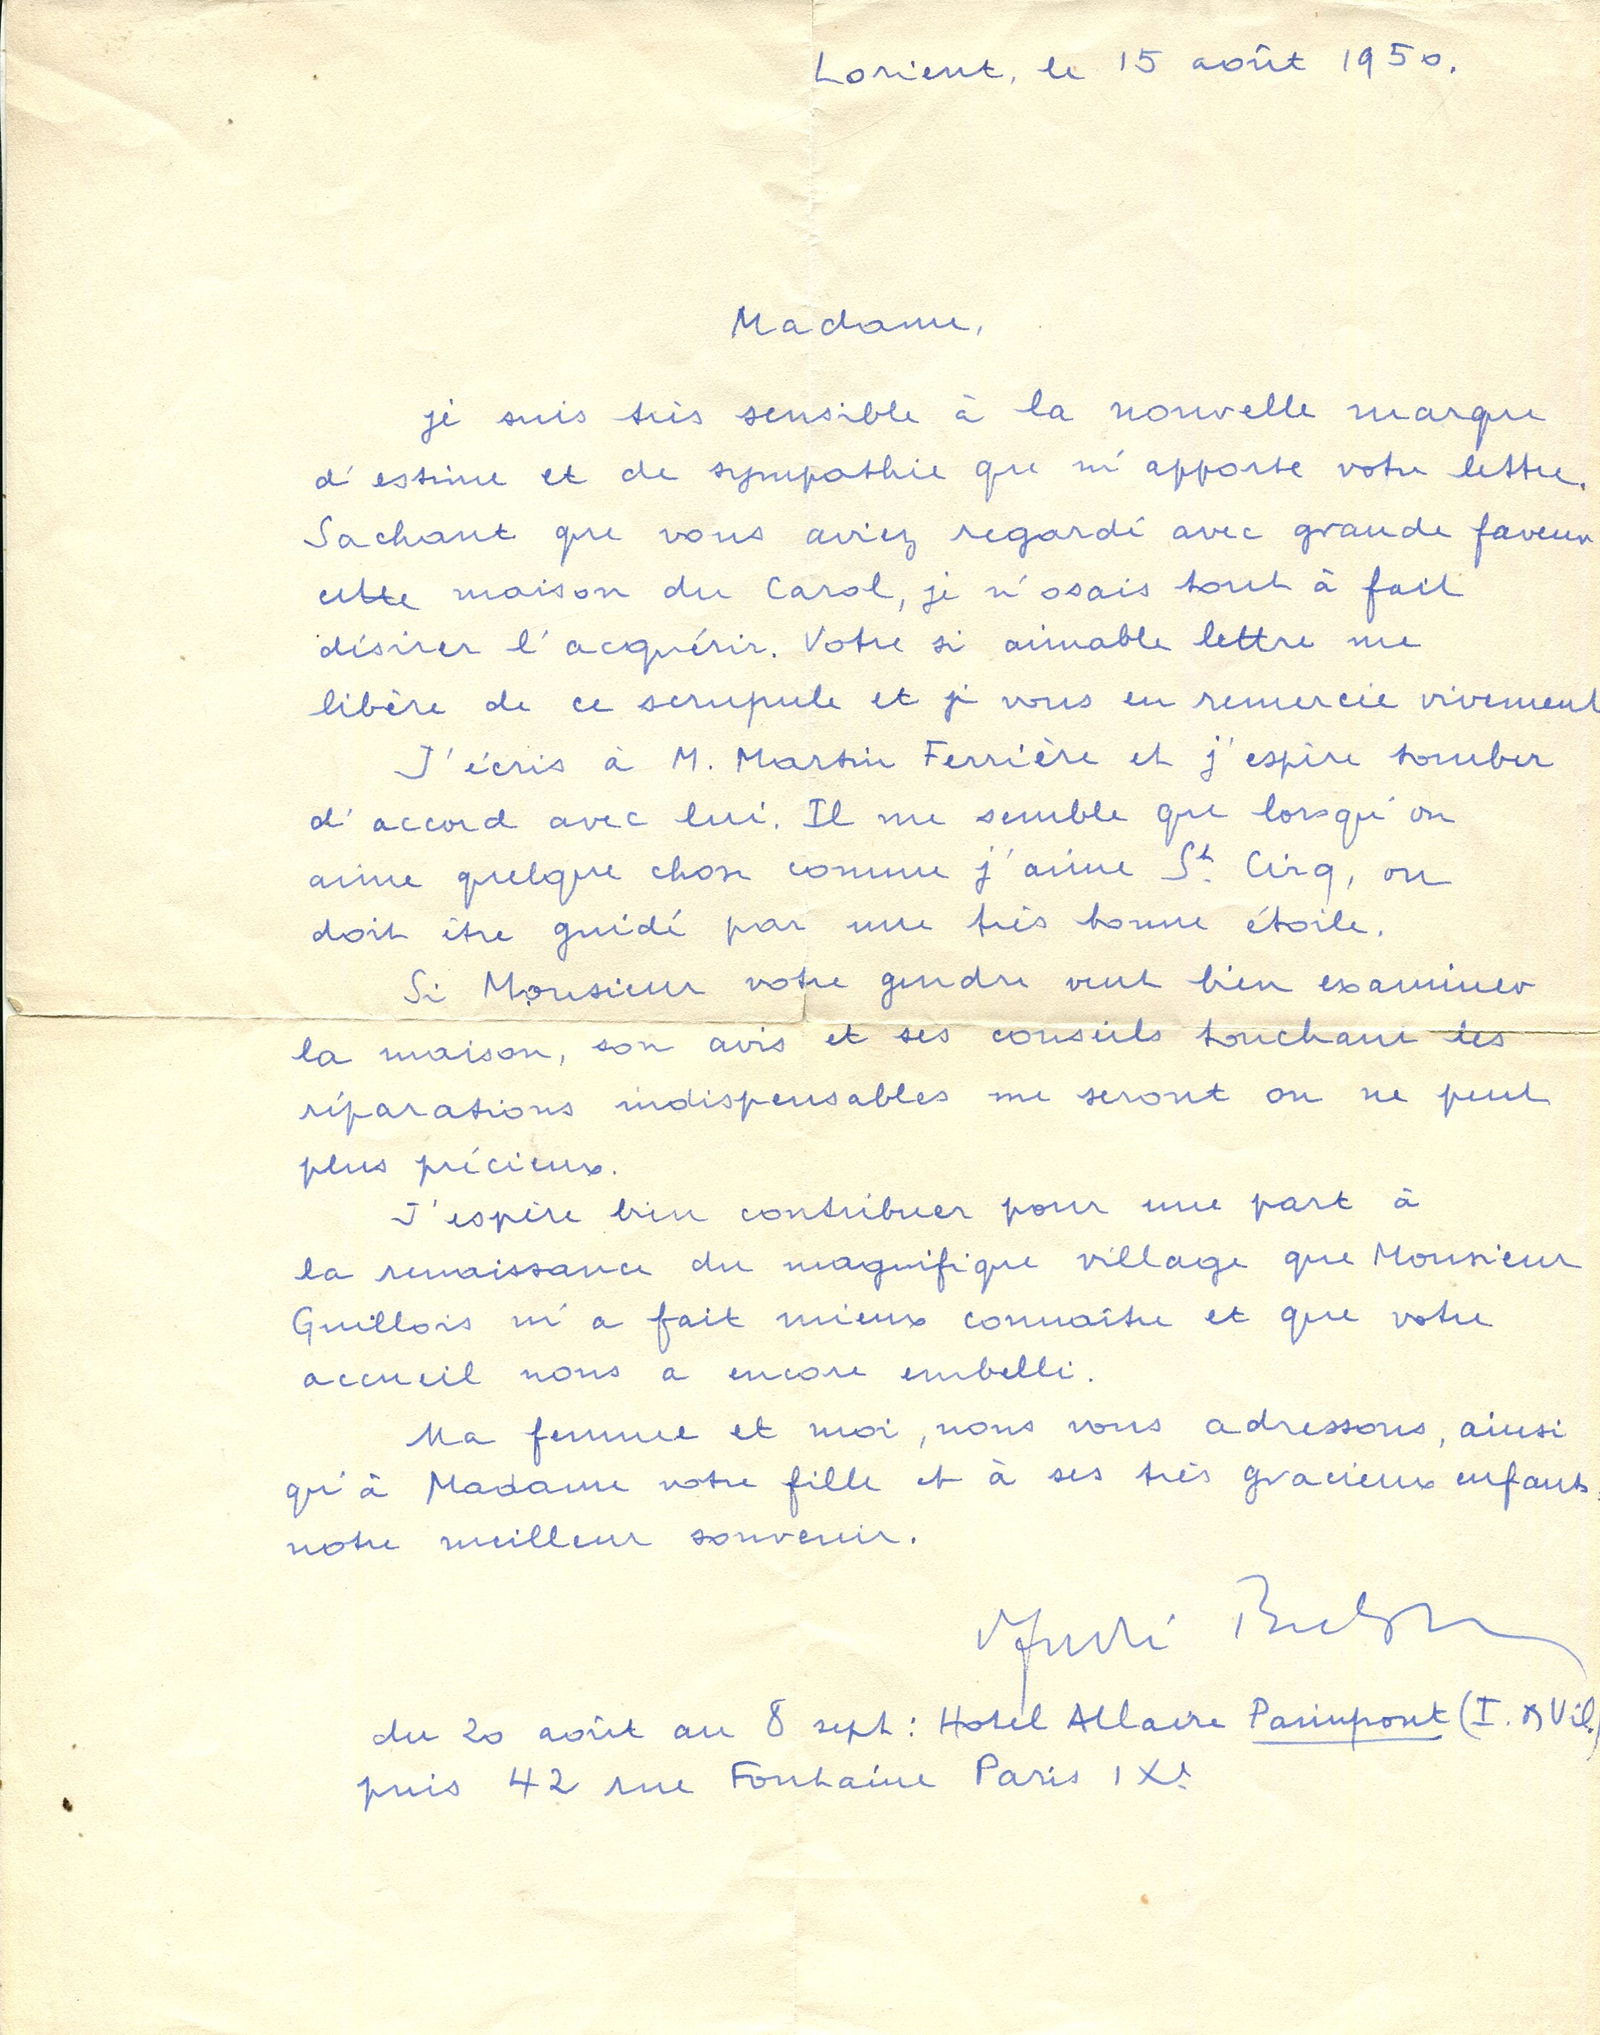 Lorient, le 15 août 1950.
Madame,
je suis très sensible à la nouvelle marque
d'estime et de sympathie que m'apporte votre lettre.
Sachant que vous aviez regardé avec grande faveur
cette maison du Carol, je n'osais tout à fait
désirer l'acquérir. Votre si aimable lettre me
libère de ce scrupule et je vous en remercie vivement
J'écris à M. Martin Ferrière et j'espère tomber
d'accord avec lui. Il me semble que lorsqu'on
aime quelque chose comme j'aime St. Cirq, on
doit être guidé par une très bonne étoile.
Si Monsieur votre gendre veut bien examiner
la maison, son avis et ses conseils touchant les
réparations indispensables me seront on ne peut
plus précieux.
J'espère bien contribuer pour une part à
la renaissance du magnifique village que Monsieur
Guillois m'a fait mieux connaître et que votre
accueil nous a encore embelli.
Ma femme et moi, nous vous adressons, ainsi
qu'à Madame votre fille et à ses très gracieux enfants,
notre meilleur souvenir.
André Breton
du 20 août au 8 sept : Hotel Allaire Paimpont (I. & Vil.)
puis 42 rue Fontaine Paris IXe